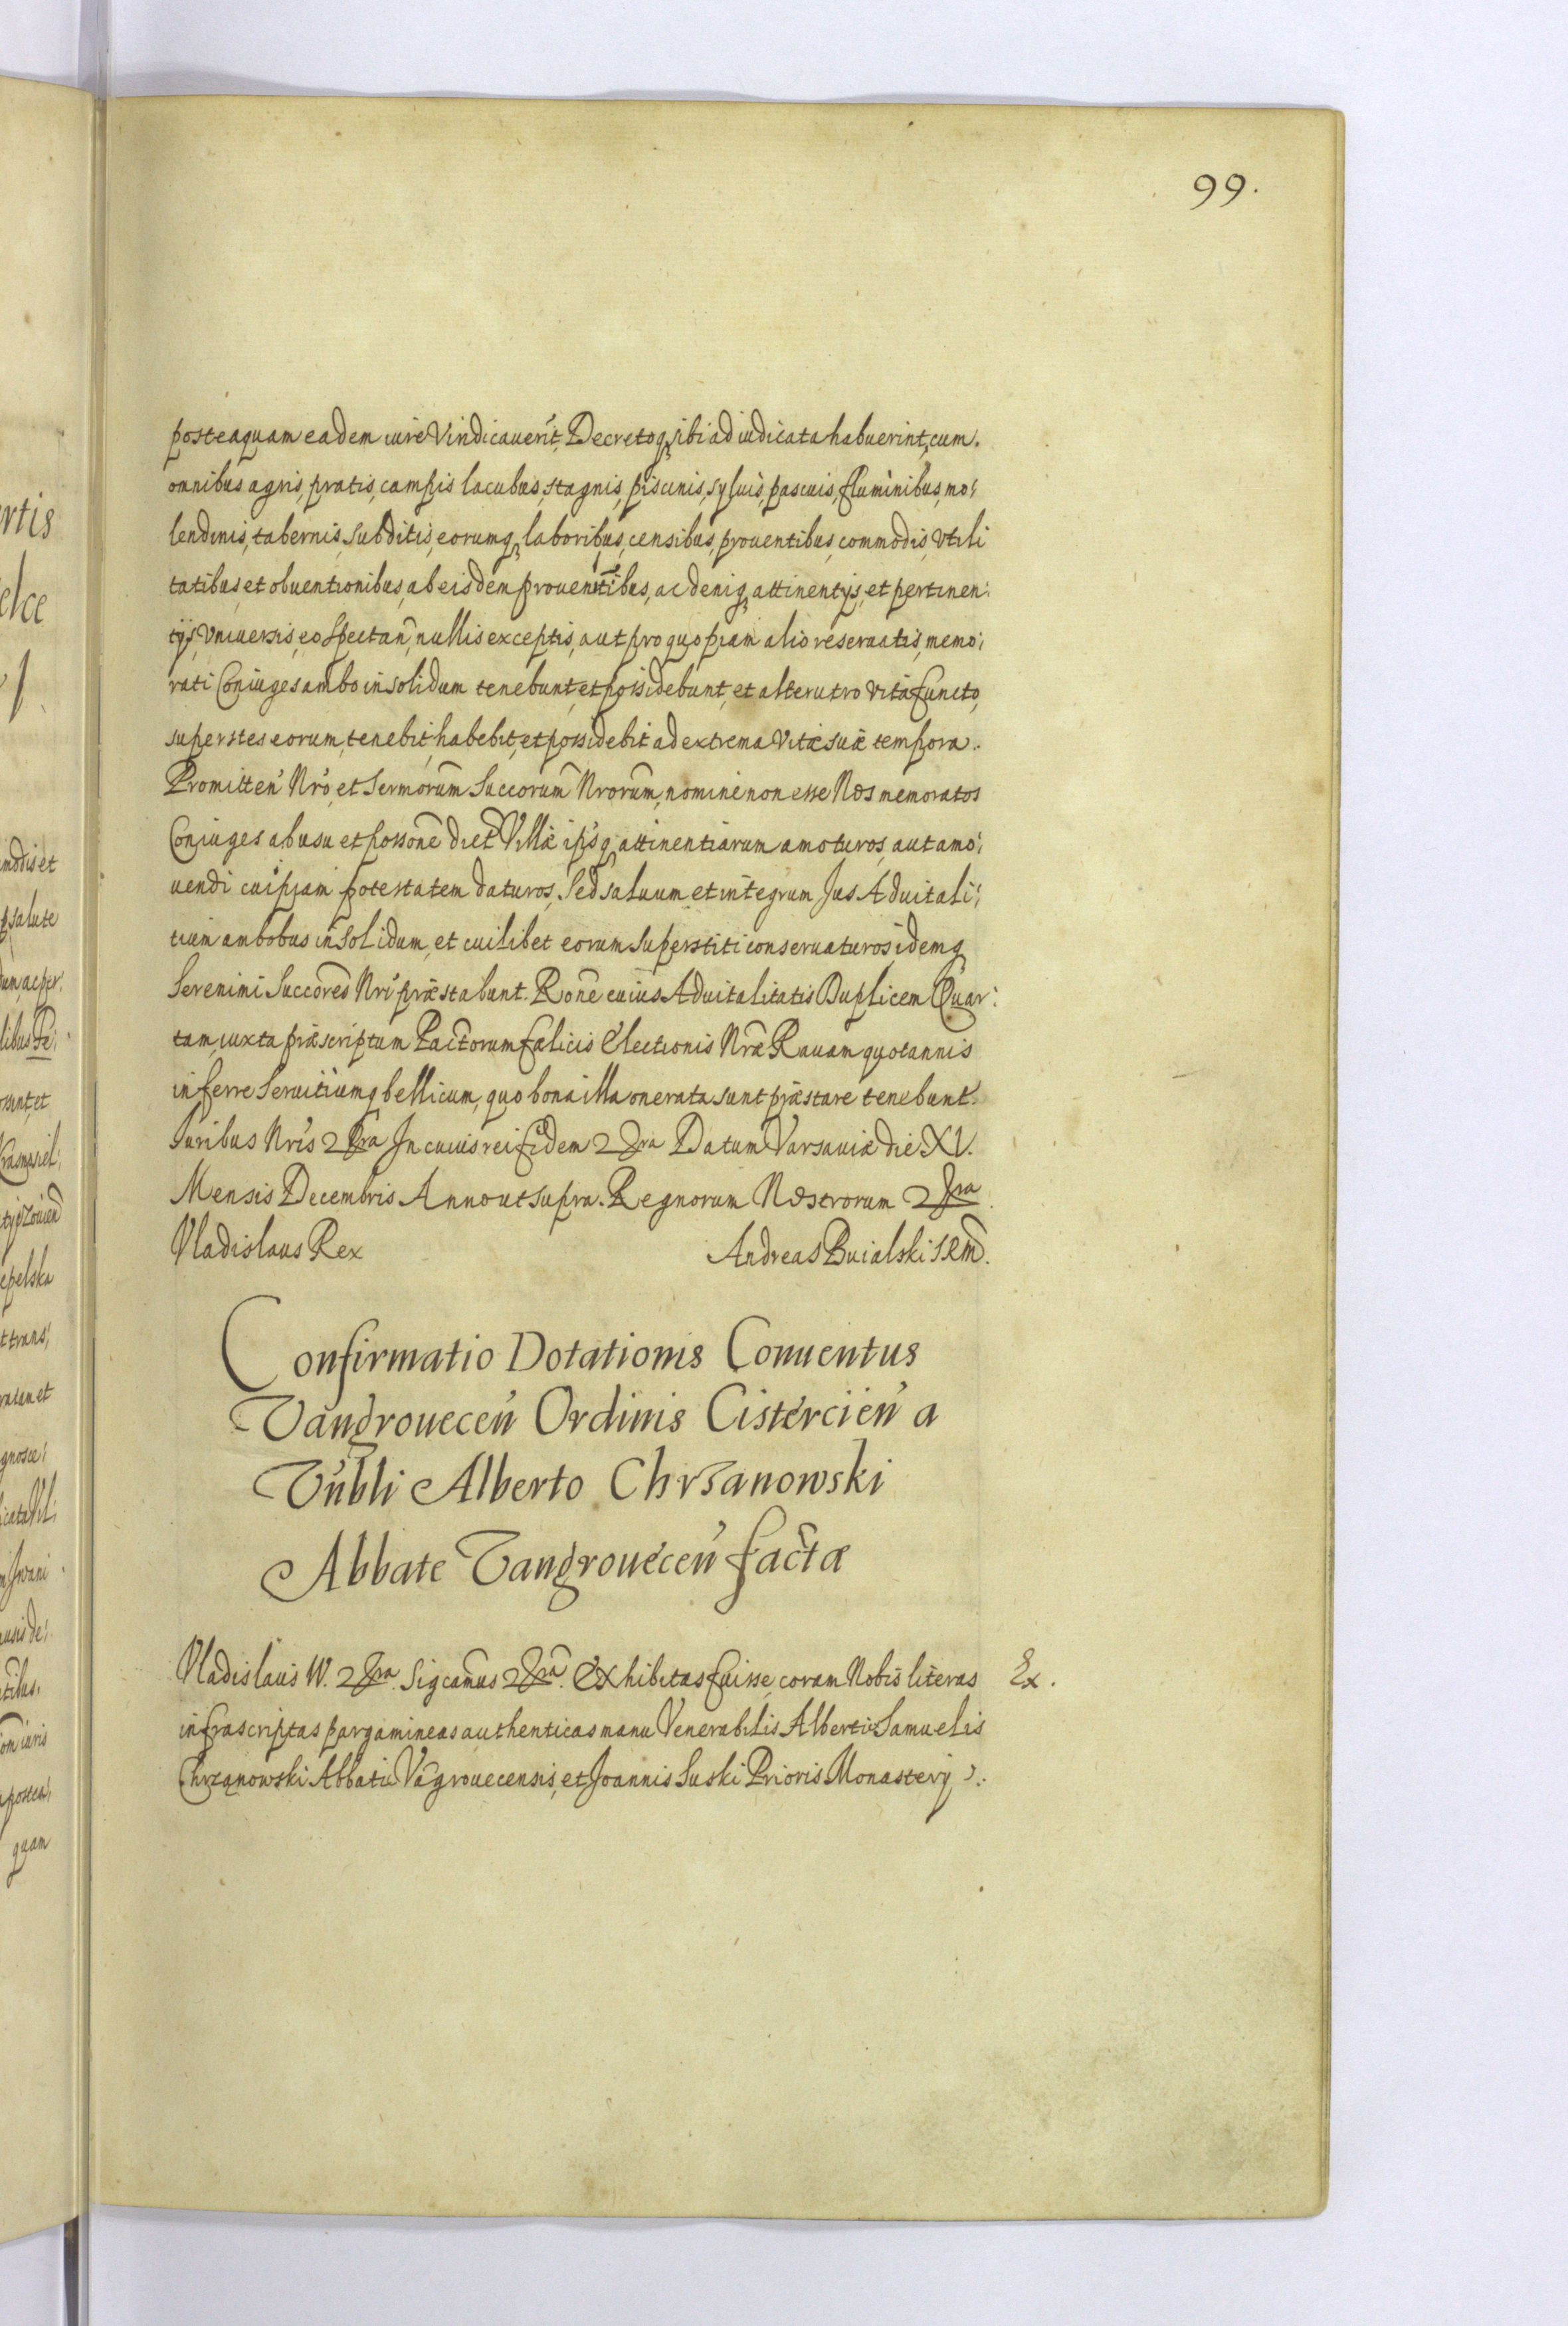 99.
posteaquam eadem iure Vindicauerit, Decretoq, sibi adiudicata habuerint, cum.
omnibus agris, pratis, campis lacubus, stagnis, piscinis, syluis, pascuis, fluminibus, mo:
lendinis, tabernis, subditis, eorumq, laboribus, censibus, prouentibus, commodis, Vtili
tatibus, et obuentionibus, ab eisdem prouentibus, ac deniq, attinentijs, et pertinen:
tijs, Vniuersis, eo Spectan, nullis exceptis, aut pro quopiam alio reseruatis, memo:
rati Coniuges ambo in solidum tenebunt, et possidebunt, et alterutro Vita functo,
superstes eorum, tenebit, habebit, et possidebit ad extrema Vitæ suæ tempora.
Promitten Nro, et Sermorum Succorum Nrorum, nomine non esse Nos memoratos
Coniuges ab usu et possone dict Villæ ipsq, attinentiarum amoturos, aut amo:
uendi cuipiam potestatem daturos, Sed saluum et integrum Jus Aduitali:
tium ambobus in solidum, et cuilibet eorum superstiti conseruaturos, idemq,
Serenimi Succores Nri præstabunt. Rone cuius Aduitalitatis Duplicem Quar:
tam, iuxta præscriptum Pactorum fælicis Electionis Nræ Rauam quotannis
inferre Seruitiumq bellicum, quo bona illa onerata sunt præstare tenebunt.
Juribus Nris 2 In cuius rei fidem 2 Datum Varsauiæ die XV.
Mensis Decembris Anno ut supra. Regnorum Nostrorum 2
Vladislaus Rex Andreas Buialski SRM.
Confirmatio Dotationis Conuentus
Vangrouecen Ordinis Cistercien a
Vnbli Alberto Chrzanowski
Abbate Vangrouecen factæ
Vladislaus IV. 2 Sigcamus 2 Exhibitas fuisse, coram Nobis literas Ex.
infrascriptas pargamineas authenticas manu Venerabilis Alberti Samuelis
Chrzanowski Abbatis Vagrouecensis, et Joannis Suski Prioris Monasterij